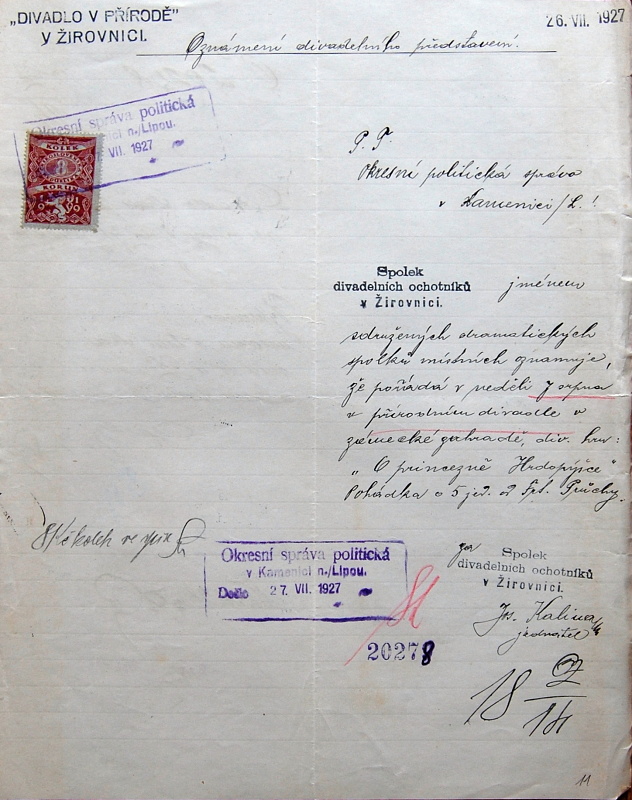 „DIVADLO V PŘÍRODĚ”
V ŽIROVNICI.
26. VII. 1927
Oznámení divadelního představení.
Okresní správa politická
n./Lipou.
VII. 1927
KOLEK
8
KORUN
P. T.
Okresní politická správa
v Kamenici /L.!
Spolek
divadelních ochotníků
v Žirovnici.
jménem
sdružených dramatických
spolků místních oznamuje,
že pořádá v neděli 7 srpna
v přírodním divadle v
zámecké zahradě, div. hru:
„O princezně Hrdopýšce"
Pohádka o 5 jed. od Frt. Průchy.
Okresní správa politická
v Kamenici n./Lipou.
Došlo 27. VII. 1927
20278
za Spolek
divadelních ochotníků
v Žirovnici.
Jos. Kalina
jednatel
18
11